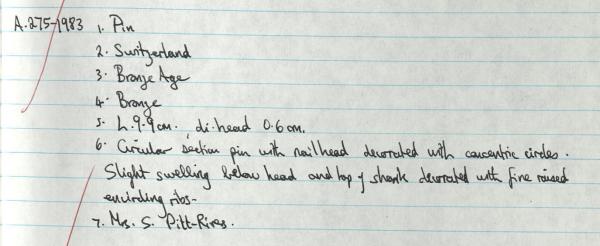 A.275-1983 1. Pin
2. Switzerland
3. Bronze Age
4. Bronze
5. L. 9.9cm. di. head 0.6cm.
6. Circular section pin with nailhead decorated with concentric circles.
Slight swelling below head and top of shank decorated with fine raised
encircling ribs.
7. Mrs. S. Pitt-Rives.